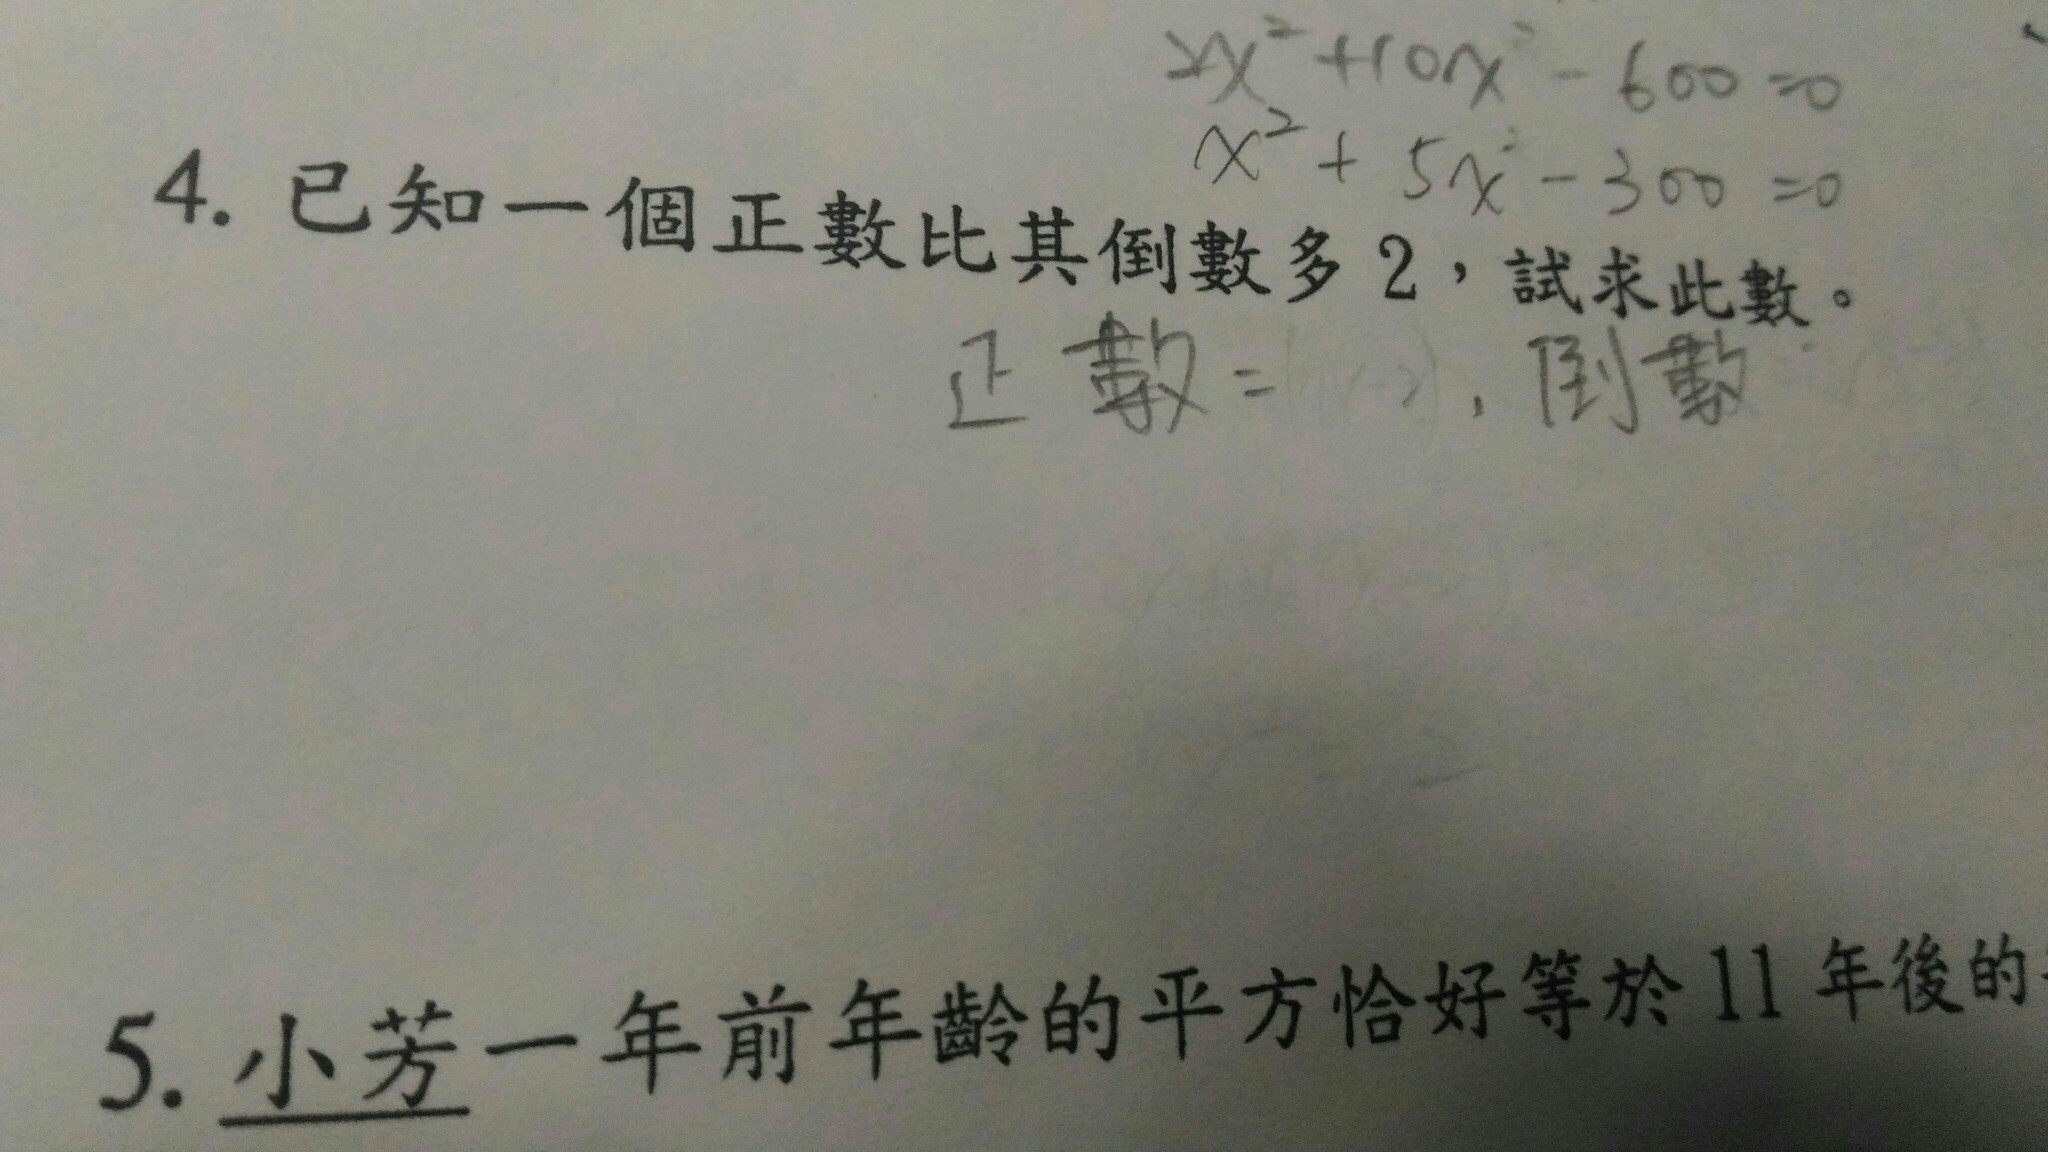 2x²+10x-600=0
x²+5x-300=0
4. 已知一個正數比其倒數多2，試求此數。
正數=，倒數
5. 小芳一年前年齡的平方恰好等於11年後的